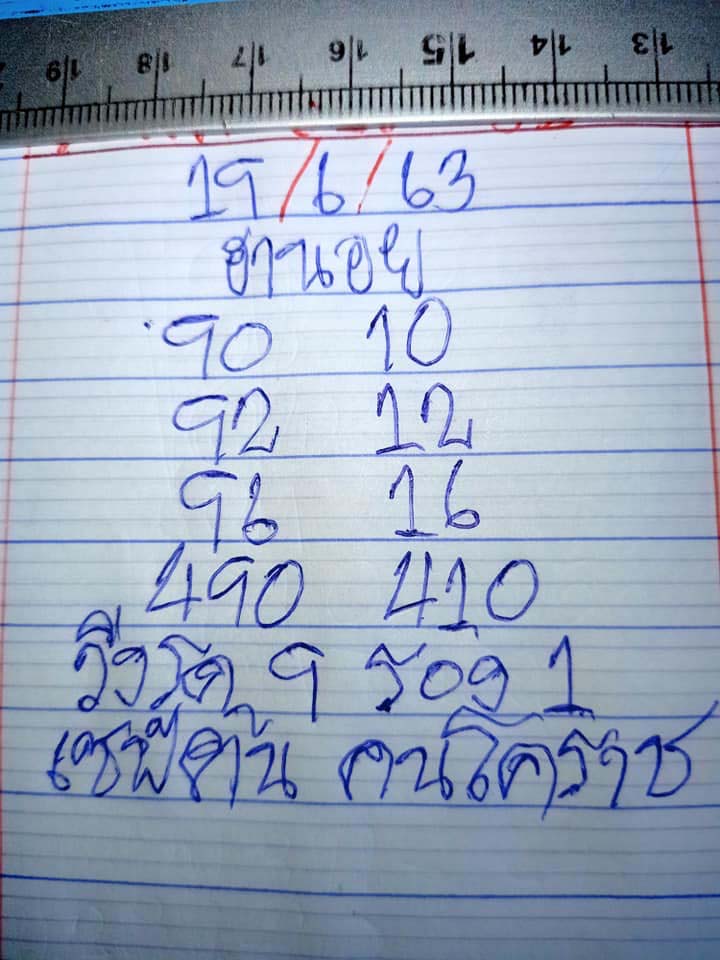 19 18 17 16 15 14 13
19/6/63
ฮานอย
90 10
92 12
96 16
490 410
วิ่งรูด 9 รอง 1
คนโคราช